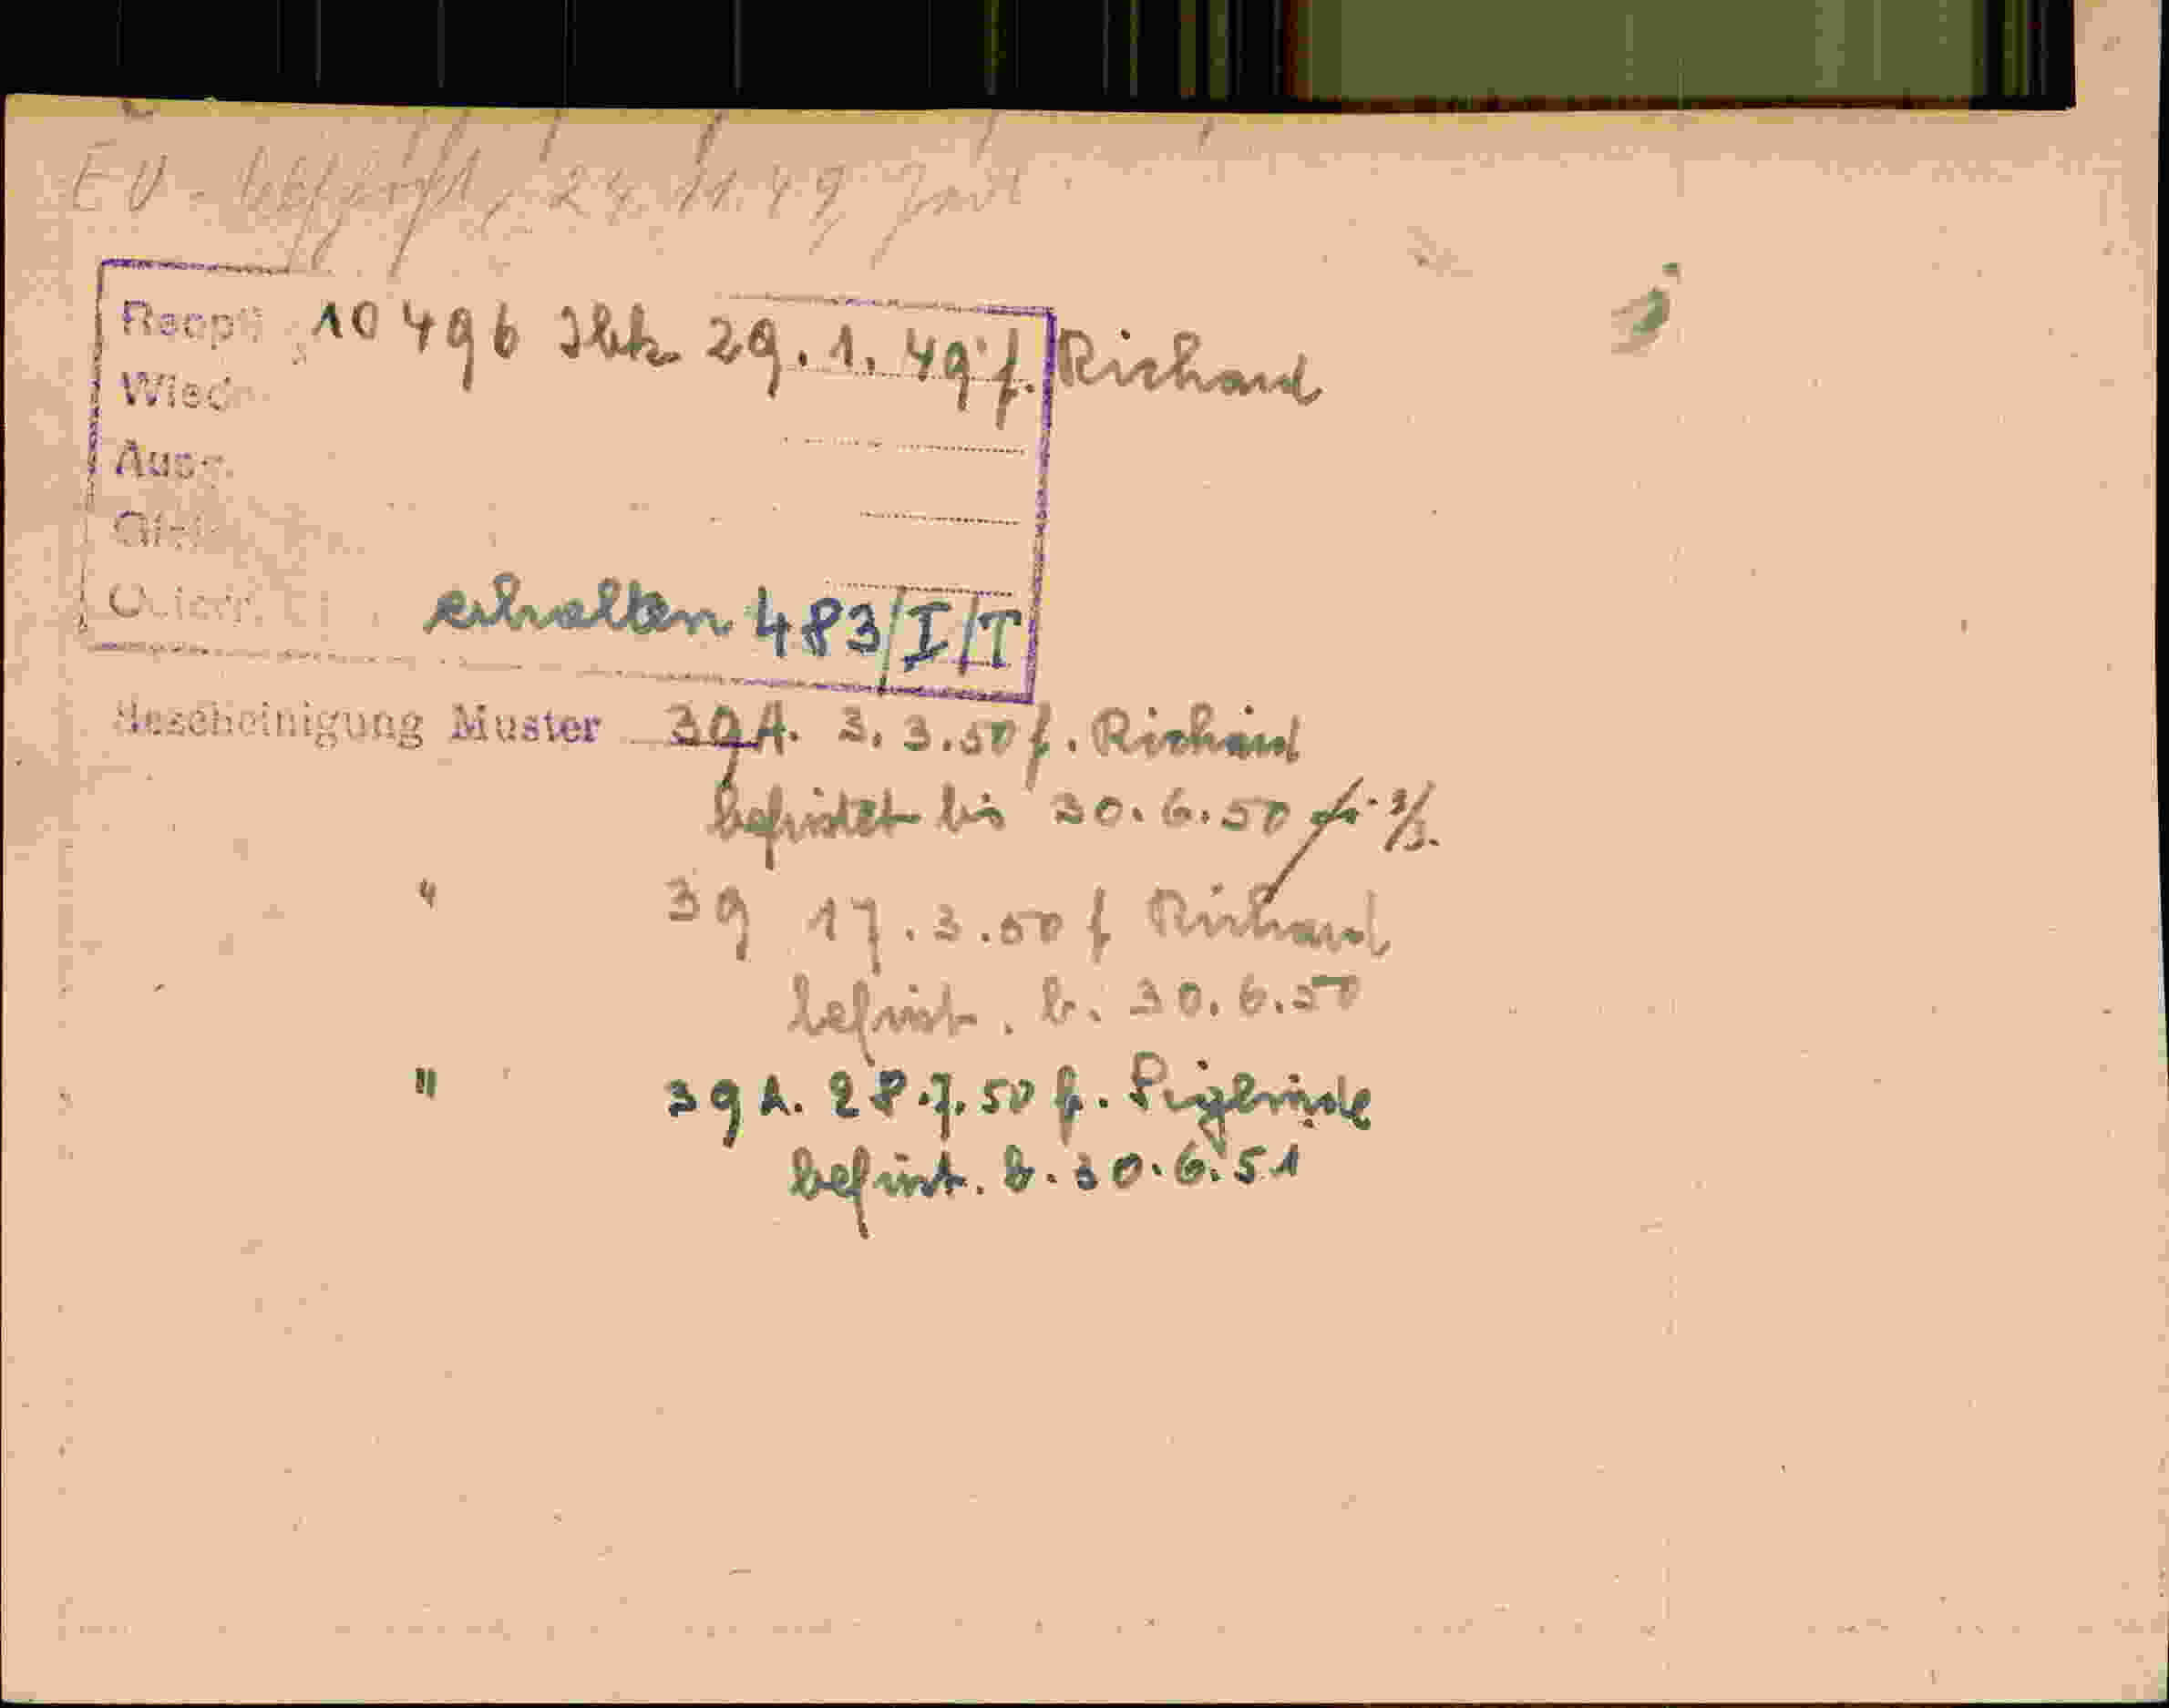 EV - 24.11.49
Reopt. 10496 Ibk. 29.1.49 f. Richard
Wied
Ausr.
erhalten 483/I/T
Bescheinigung Muster 39A. 3.3.50 f. Richard
befristet bis 30.6.50 3/3.
" 39 17.3.50 f Richard
befrist. b. 30.6.50
" 39A. 28.7.50 f. Siglinde
befrist. b. 30.6.51